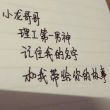 小龙哥哥
理工第一男神
记住我的名字
和我带给你的故事